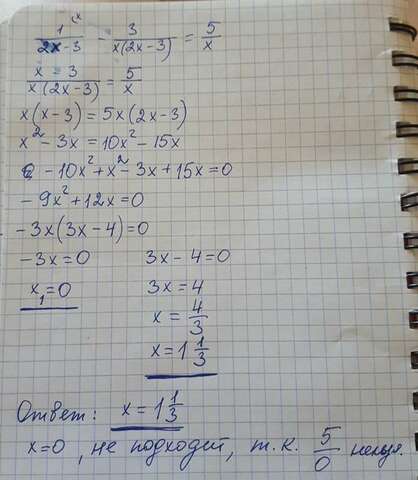 1/(2x-3) ^(x - 3/(x(2x-3)) = 5/x
(x - 3)/(x(2x-3)) = 5/x
x(x-3) = 5x(2x-3)
x² - 3x = 10x² - 15x
- 10x² + x² - 3x + 15x = 0
- 9x² + 12x = 0
- 3x(3x - 4) = 0
- 3x = 0   3x - 4 = 0
x₁ = 0   3x = 4
x = 4/3
x = 1 1/3
Ответ: x = 1 1/3
x=0, не подходит, т.к. 5/0 нельзя.